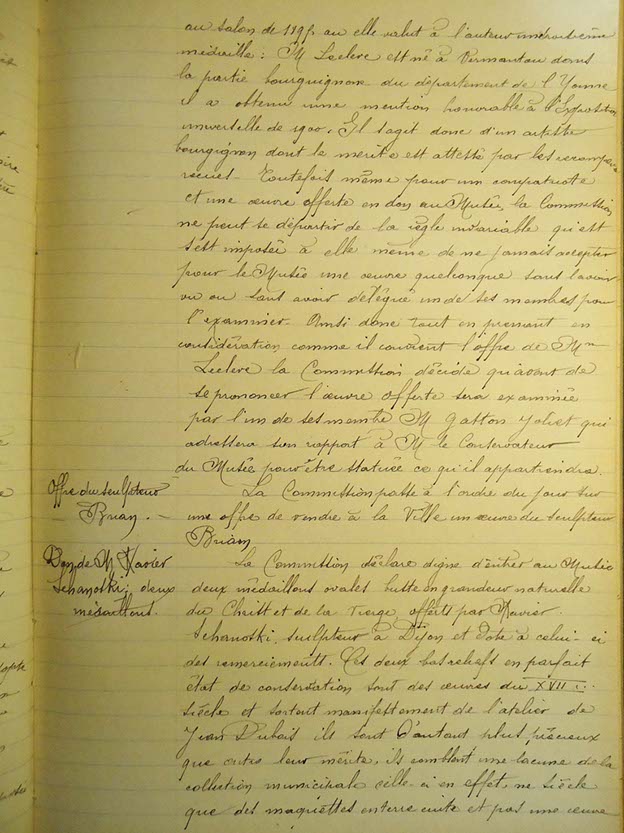 au salon de 189 . où elle valut à l'auteur une troisième
médaille : M Leclere est né à Vermanton dans
la partie bourguignone du département de l'Yonne
il a obtenu une mention honorable à l'Exposition
universelle de 1900. Il s'agit donc d'un artiste
bourgignon dont le mérite est attesté par les recompen
recues - Toutefois même pour un compatriote
et une œuvre offerte en don au Musée, la Commission
ne peut se départir de la règle invariable qui est
s'est imposée à elle même de ne jamais accepter
pour le Musée une œuvre quelconque sans l'avoir
vu ou sans avoir délégué un de ses membres pour
l'examiner - Ainsi donc tout en prenant en
considération comme il convient l'offre de M
Leclere la Commission décide qu'avant de
se prononcer l'œuvre offerte sera examinée
par l'un de ses membre M Gaston Joliet qui
adressera son rapport à M le Conservateur
du Musée pour être statuée ce qu'il appartiendra.
Offre du sculpteur
Brian . -
La Commission passe à l'ordre du jour sur
une offre de vendre à la Ville un œuvre du sculpteur
Brian
Don de M Xavier
Schanoski, deux
médaillons.
La Commission déclare digne d'entrer au Musée
deux médaillons ovales buste en grandeur naturelle
du Christ et de la Vierge offerts par Xavier
Schanoski, sculpteur à Dijon et vote à celui-ci
des remerciements. Ces deux bas reliefs en parfait
état de conservation sont des œuvres du XVII
siècle et sortent manifestement de l'atelier de
Jean Dubois ils sont d'autant plus précieux
que outre leur mérite, ils comblent une lacune de la
collection municipale celle-ci en effet ne
que des maquettes en terre cuite et pas une œuvre